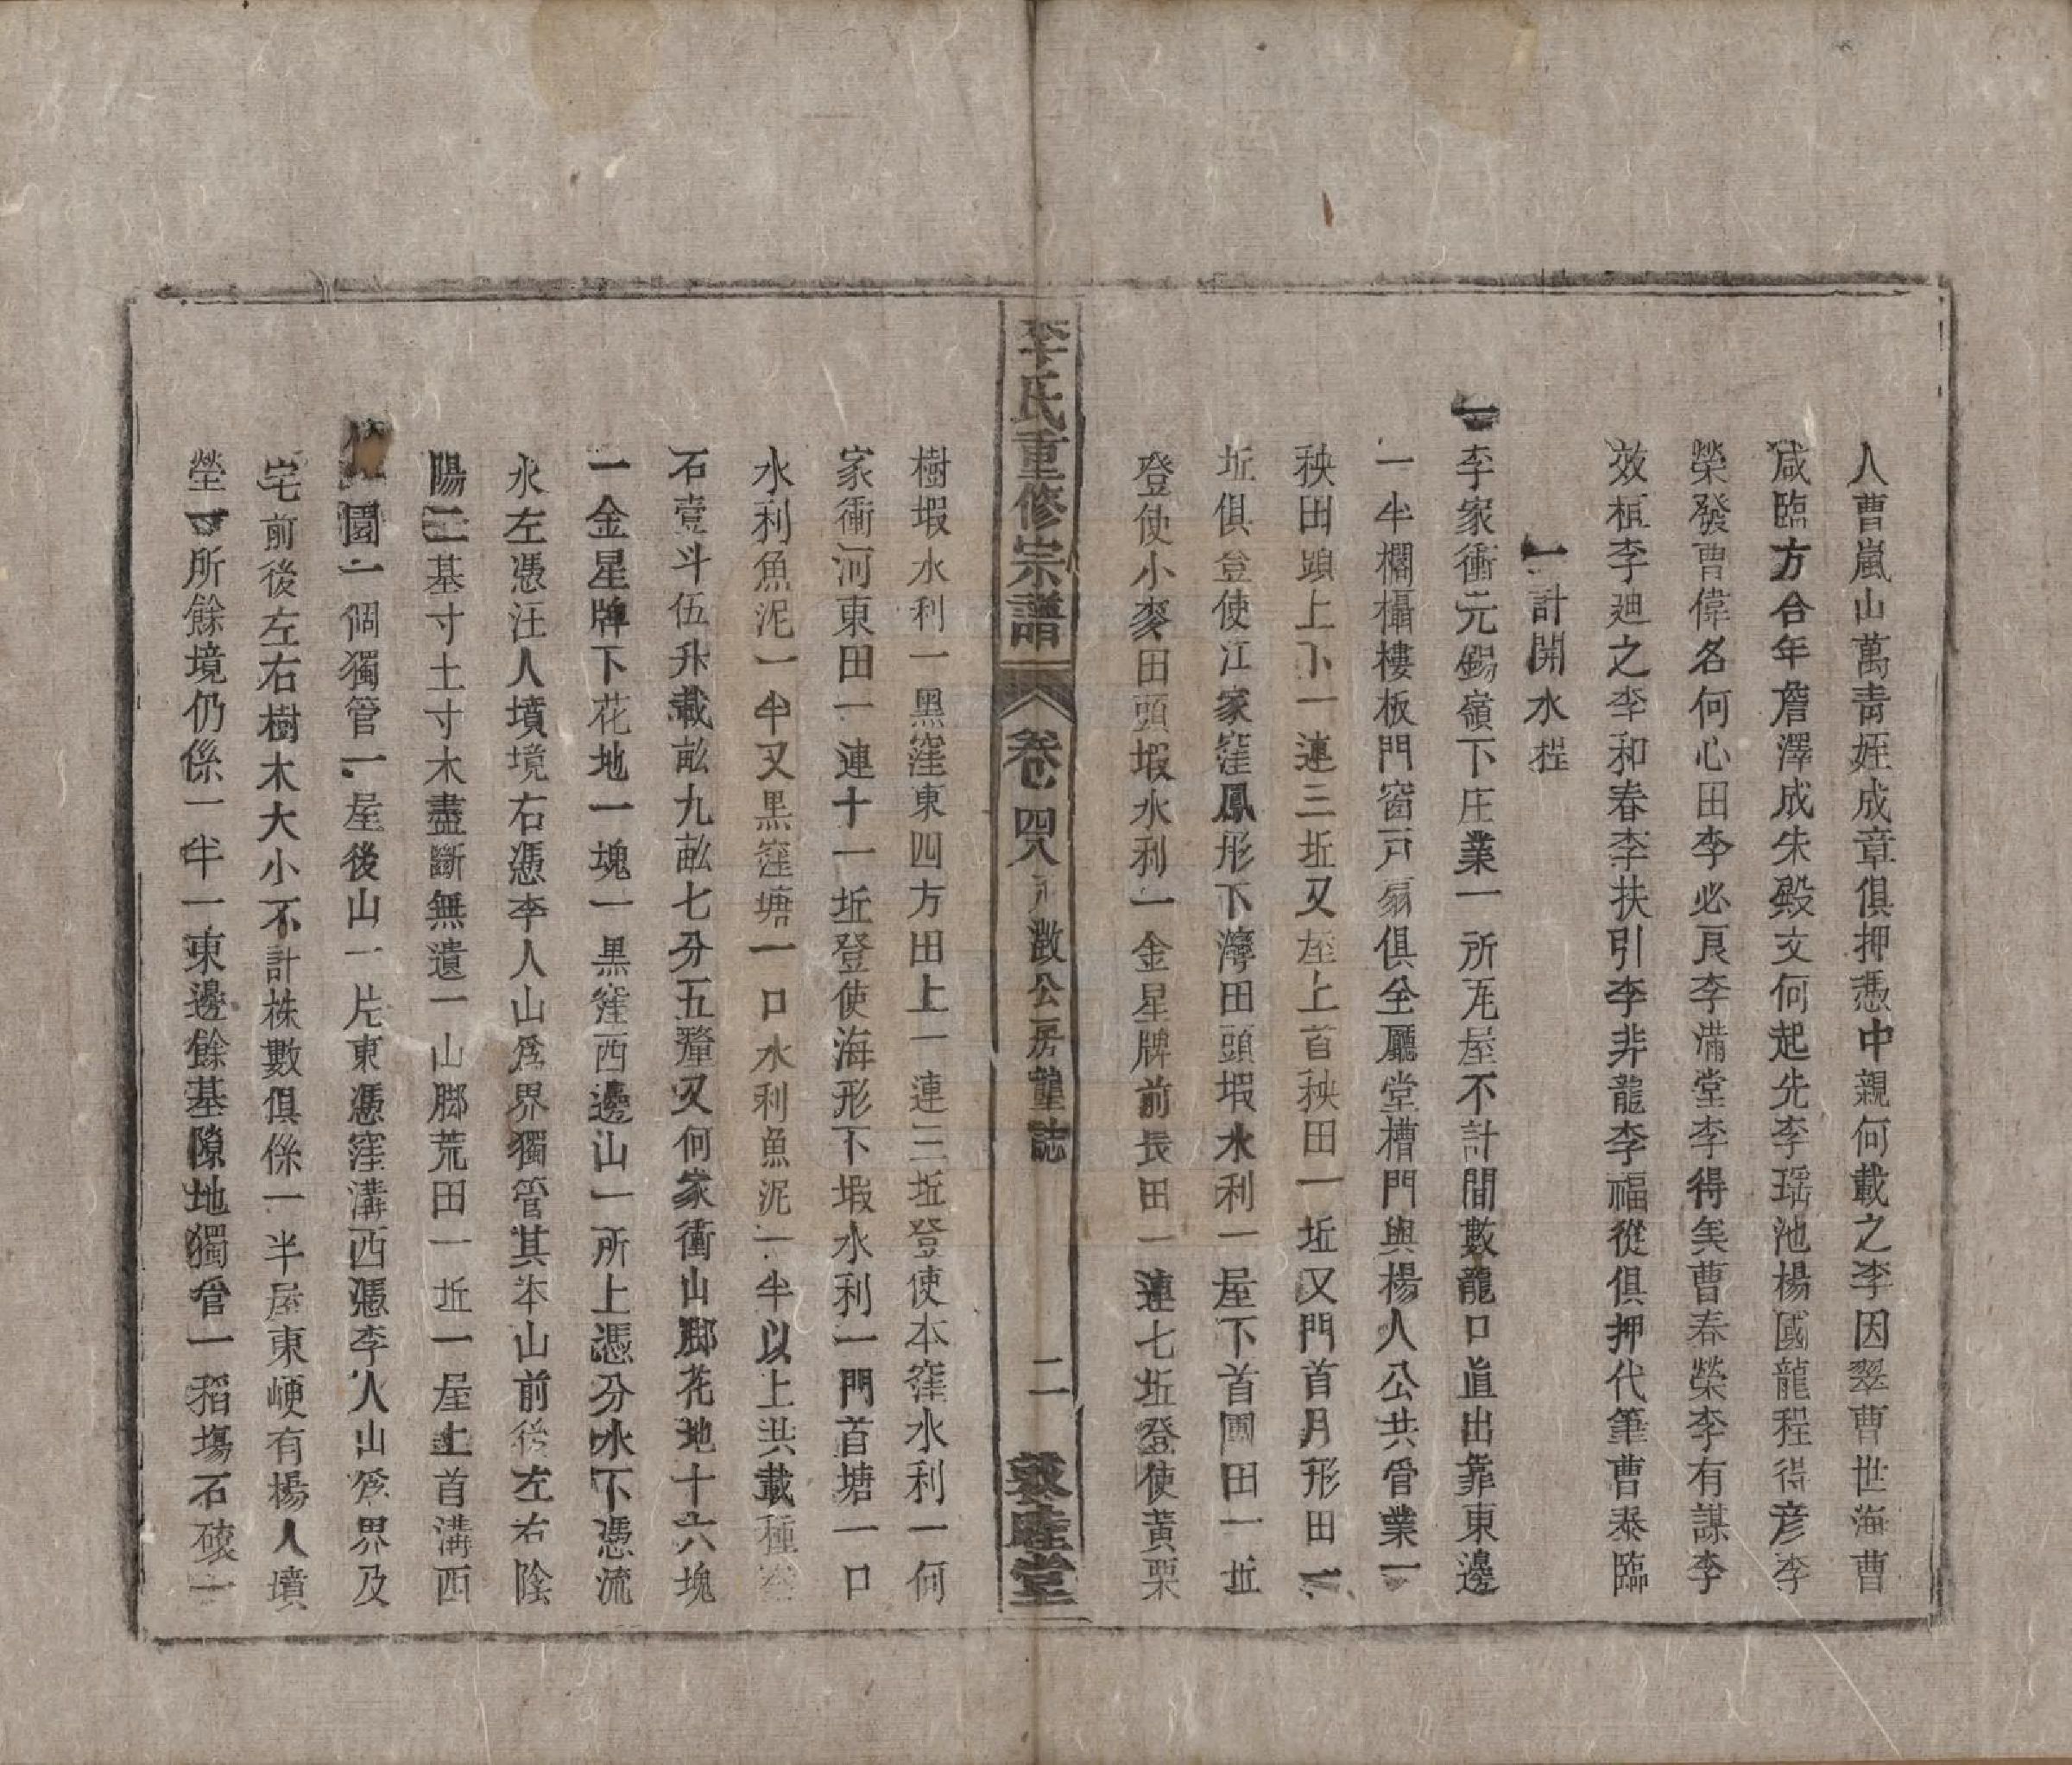 人曹嵐山萬靑姪成章俱押憑中親何載之李因翠曹世海曹
咸臨方合年詹澤成朱殿文何起先李瑶池楊國龍程得彦李
榮發曹偉名何心田李必艮李滿堂李得矣曹春榮李有謀李
效桓李廸之李和春李扶引李非龍李福從俱押代筆曹泰臨
一計開水程
一李家衝元錫嶺下庄業一所瓦屋不計間數龍口直出靠東邊
一半欄欇樓板門窗戸扇俱全廳堂槽門與楊人公共管業一
秧田頭上下一連三坵又屋上首秧田一坵又門首月形田一
坵俱登使江家窪鳳形下薄田頭塅水利一屋下首團田一坵
登使小麥田頭塅水利一金星牌前長田一連七坵登使黃栗
李氏重修宗譜
卷四八
激公房董誌
二
敦睦堂
樹塅水利一黑窪東四方田上一連三坵登使本窪水利一何
家衝河東田一連十一坵登使海形下塅水利一門首塘一口
水利魚泥一半又黑窪塘一口水利魚泥一半以上共載種
石壹斗伍升載畝九畝七分五釐又何家衝山脚花地十六塊
一金星牌下花地一塊一黒窪西邊山一所上憑分水下憑流
水左憑汪人墳境右憑李人山爲界獨管其本山前後左右陰
陽二基寸土寸木盡斷無遺一山脚荒田一坵一屋上首溝西
園一個獨管一屋後山一片東憑窪溝西憑李人山爲界及
宅前後左右樹木大小不計株數俱係一半屋東峺有楊人墳
塋一所餘境仍係一半一東邊餘基隙地獨管一稻塲石磙一